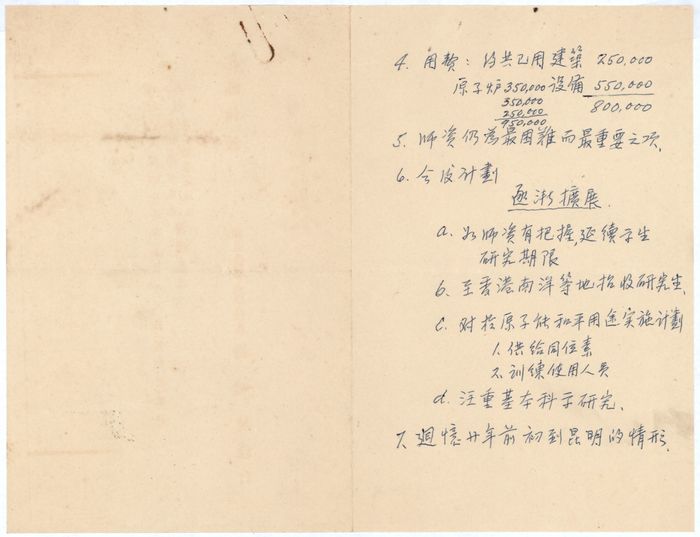 4. 用费：约共已用建築 250,000
原子炉 350,000 设备 550,000
350,000 800,000
250,000
950,000
5. 师资仍為最困難而最重要之项.
6. 今后计劃
逐渐擴展
a. 如师资有把握,延续学生
研究期限
b. 至香港南洋等地招收研究生.
c. 对於原子能和平用途实施计劃
1. 供给同位素
2. 訓練使用人员
d. 注重基本科学研究.
7. 迴憶廿年前初到昆明的情形.